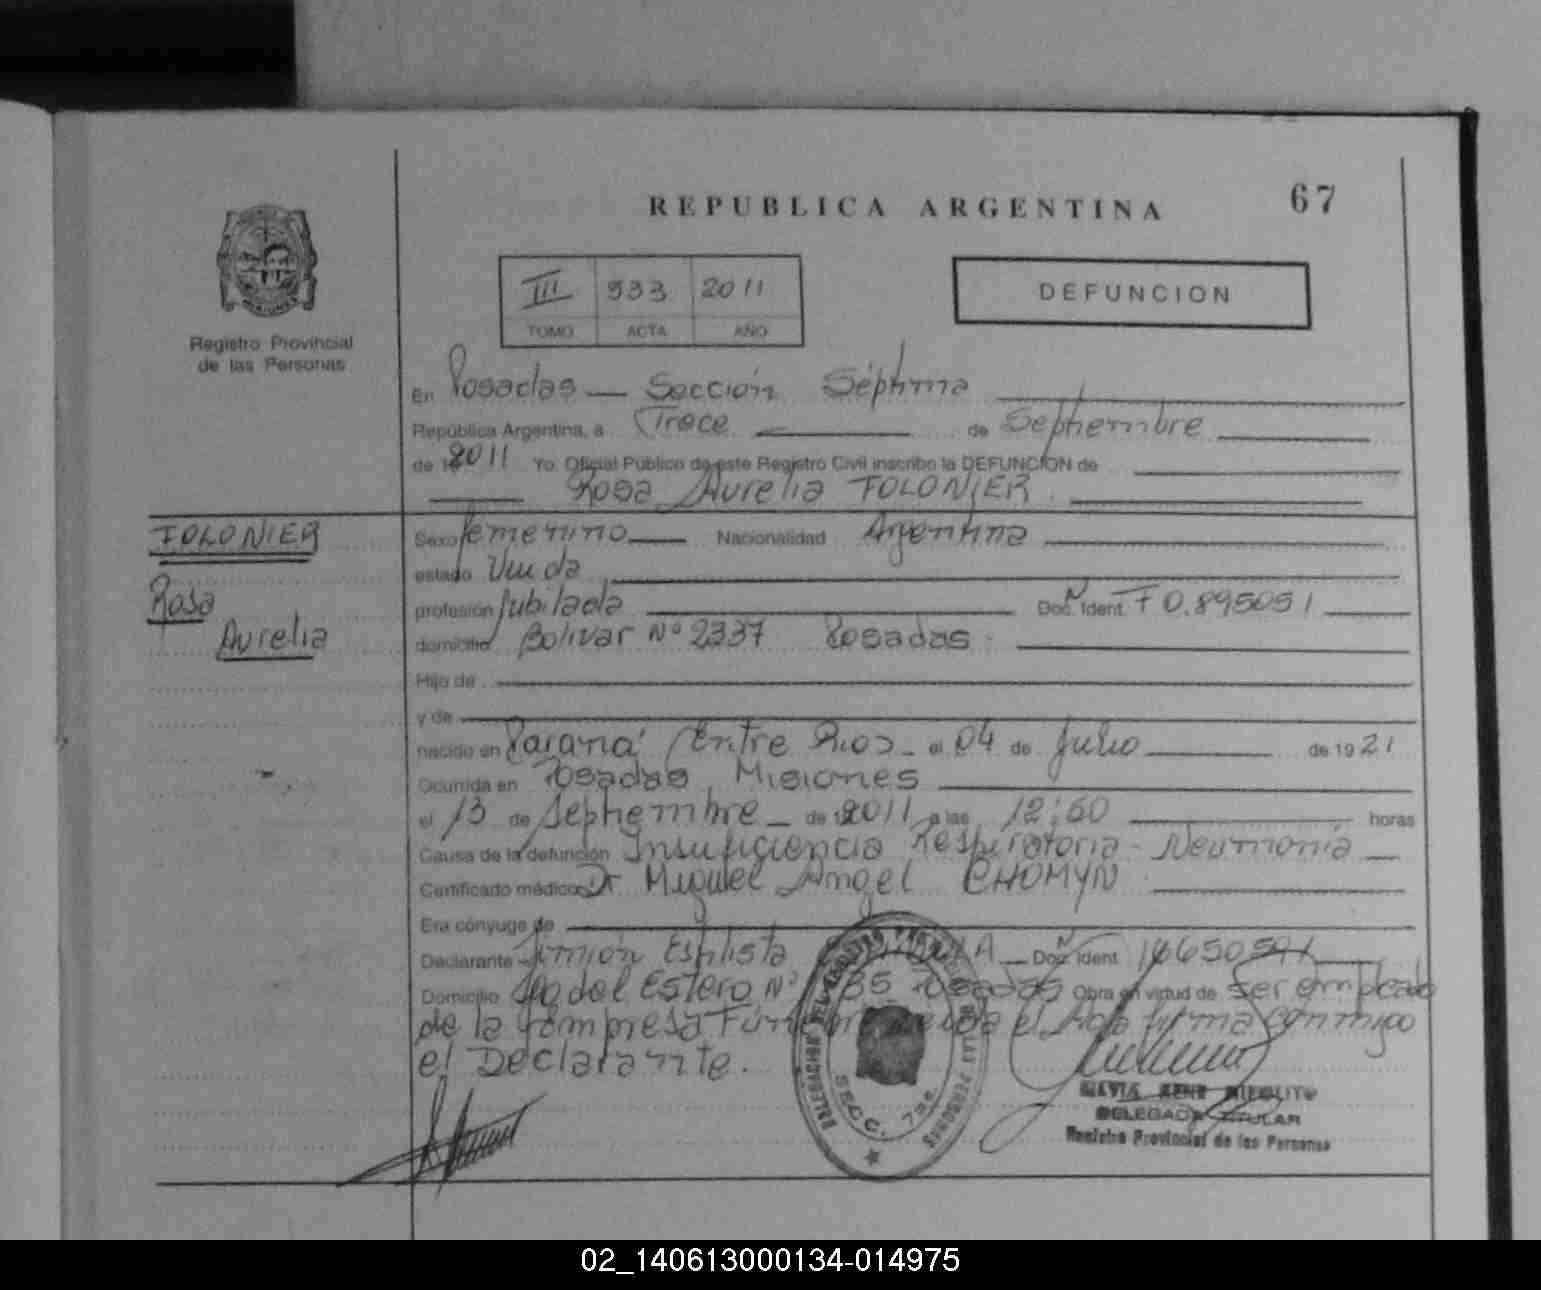 REPUBLICA ARGENTINA
67
Registro Provincial
de las Personas
III 933 2011
TOMO ACTA AÑO
DEFUNCION
En Posadas — Sección Séptima
República Argentina, a Trece de Septiembre
de 2011 Yo, Oficial Público de este Registro Civil inscribo la DEFUNCION de
Rosa Aurelia TOLONIER
TOLONIER
Rosa
Aurelia
Sexo femenino Nacionalidad Argentina
estado Viuda
profesión Jubilada Doc. Ident. F 0.895051
domicilio Bolivar Nº 2337 Posadas
Hijo de
y de
nacido en Paraná Entre Rios el 04 de Julio de 1921
Ocurrida en Posadas, Misiones
el 13 de Septiembre de 2011 a las horas
Causa de la defunción Insuficiencia Respiratoria - Neumonía
Certificado médico Dr Miguel Angel CHOMYN
Era cónyuge de
Declarante Doc. Ident.
Domicilio Sgo del Estero Nº Posadas Obra en virtud de ser empleado
de la Empresa el Acta firma conmigo
el Declarante.
DELEGACION DEL REGISTRO PROVINCIAL DE LAS PERSONAS
SECC. 7ma.
DELEGADA TITULAR
Registro Provincial de las Personas
02_140613000134-014975